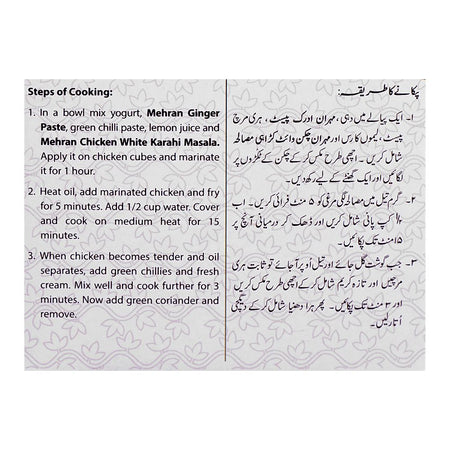 Steps of Cooking:
1. In a bowl mix yogurt, Mehran Ginger
Paste, green chilli paste, lemon juice and
Mehran Chicken White Karahi Masala.
Apply it on chicken cubes and marinate
it for 1 hour.
2. Heat oil, add marinated chicken and fry
for 5 minutes. Add 1/2 cup water. Cover
and cook on medium heat for 15
minutes.
3. When chicken becomes tender and oil
separates, add green chillies and fresh
cream. Mix well and cook further for 3
minutes. Now add green coriander and
remove.
پکانے کا طریقہ:
۱- ایک پیالے میں دہی، مہران ادرک پیسٹ، ہری مرچ
پیسٹ، لیموں کا رس اور مہران چکن وائٹ کڑاہی مصالحہ
شامل کریں۔ اچھی طرح مکس کر کے چکن کے ٹکڑوں پر
لگائیں اور ایک گھنٹے کے لیے رکھ دیں۔
۲- گرم تیل میں مصالحہ لگی مرغی کو ۵ منٹ فرائی کریں۔ اب
۱/۲ کپ پانی شامل کریں اور ڈھک کر درمیانی آنچ پر
۱۵ منٹ تک پکائیں۔
۳- جب گوشت گل جائے اور تیل اُوپر آ جائے تو ثابت ہری
مرچیں اور تازہ کریم شامل کر کے اچھی طرح مکس کریں
اور ۳ منٹ تک پکائیں۔ پھر ہرا دھنیا شامل کر کے دیگچی
اُتار لیں۔